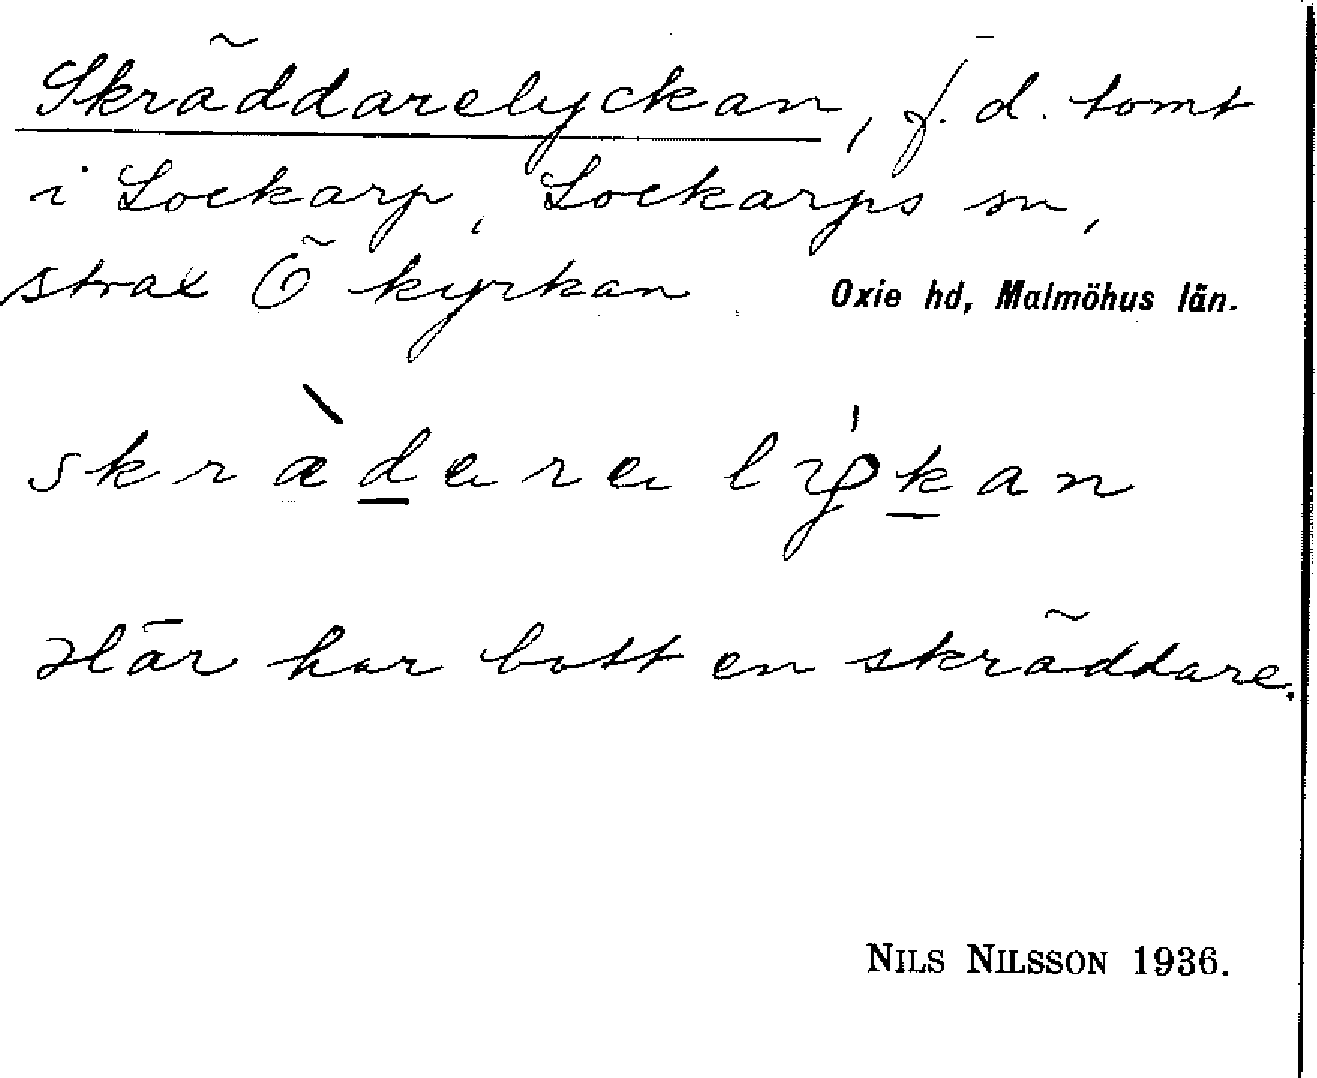 Skräddarelyckan, f. d. tomt
i Lockarp, Lockarps sn,
strax Ö kyrkan. Oxie hd, Malmöhus län.
Här har bott en skräddare.
NILS NILSSON 1936.